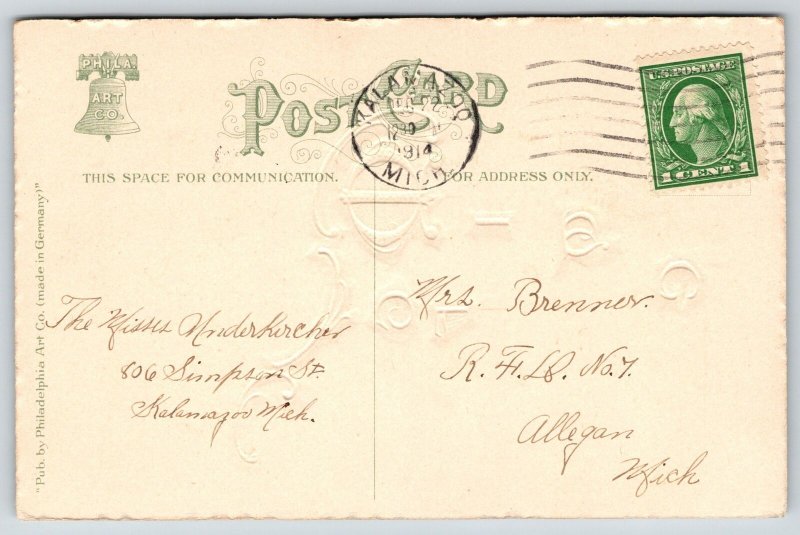 PHILA.
ART
CO.
POST CARD
KALAMAZOO
DEC 22
1230
1914
MICH.
U.S. POSTAGE
1 CENT 1
THIS SPACE FOR COMMUNICATION.
FOR ADDRESS ONLY.
"Pub. by Philadelphia Art Co. (made in Germany)"
The Misses Underkircher
806 Simpson St.
Kalamazoo Mich.
Mrs. Brenner.
R.F.D. No. 7.
Allegan
Mich